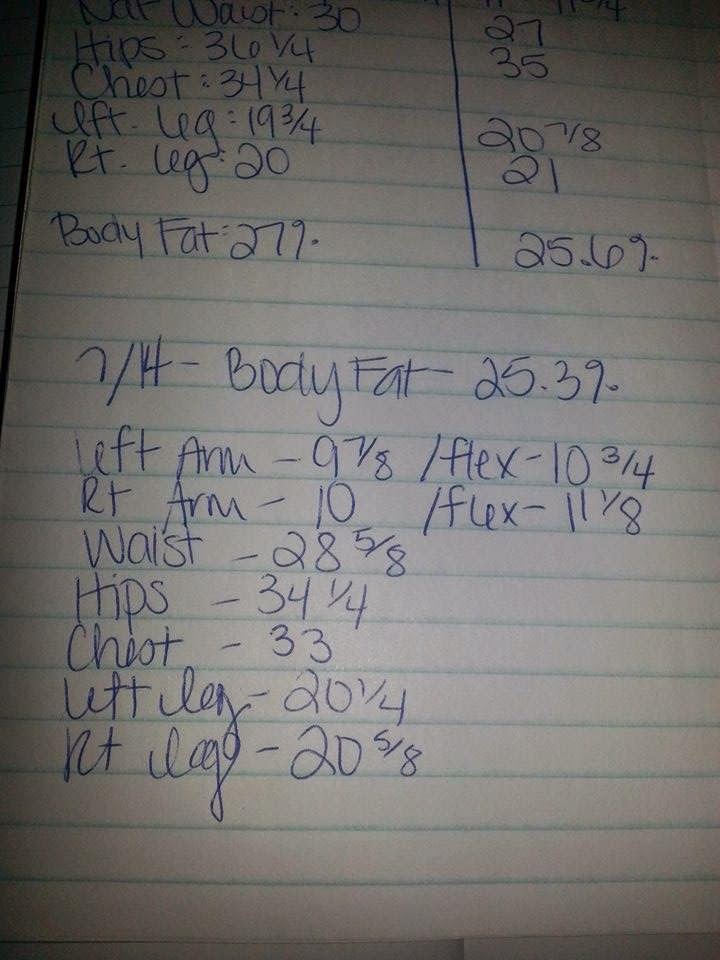 Nat Waist: 30
Hips: 36 1/4 27
Chest: 34 1/4 35
Left. Leg: 19 3/4 20 7/8
Rt. Leg: 20 21
Body Fat: 27%. 25.6%.
7/14 - Body Fat - 25.3%.
Left Arm - 9 7/8 /flex - 10 3/4
Rt Arm - 10 /flex - 11 1/8
Waist - 28 5/8
Hips - 34 1/4
Chest - 33
Left leg - 20 1/4
Rt leg - 20 5/8